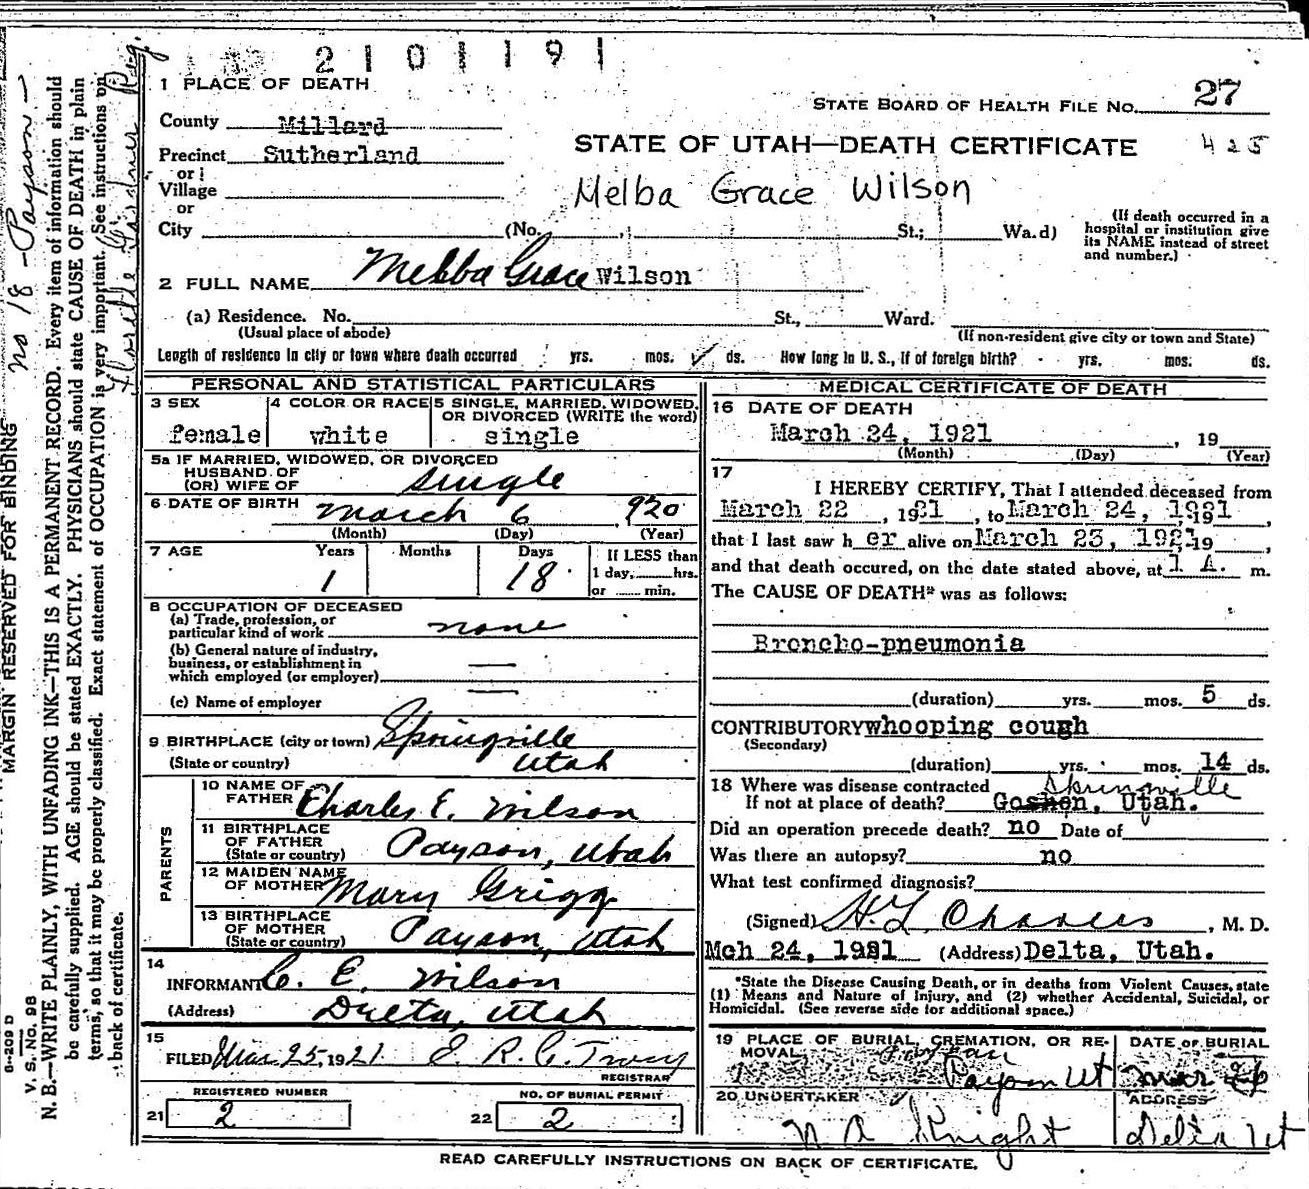 2101191
1 PLACE OF DEATH
STATE BOARD OF HEALTH FILE NO. 27
County Millard
STATE OF UTAH—DEATH CERTIFICATE 425
Precinct Sutherland
or
Village
Melba Grace Wilson
or
City (No. , St.; Wa.d)
(If death occurred in a hospital or institution give its NAME instead of street and number.)
2 FULL NAME Melba Grace Wilson
(a) Residence. No. St., Ward.
(Usual place of abode) (If non-resident give city or town and State)
Length of residence in city or town where death occurred yrs. mos. ds. How long in U. S., if of foreign birth? yrs. mos. ds.
PERSONAL AND STATISTICAL PARTICULARS
3 SEX 4 COLOR OR RACE 5 SINGLE, MARRIED, WIDOWED, OR DIVORCED (WRITE the word)
female white single
5a IF MARRIED, WIDOWED, OR DIVORCED
HUSBAND OF
(OR) WIFE OF single
6 DATE OF BIRTH March 6, 1920
(Month) (Day) (Year)
7 AGE Years Months Days If LESS than
1 18 1 day, hrs.
or min.
8 OCCUPATION OF DECEASED
(a) Trade, profession, or
particular kind of work none
(b) General nature of industry,
business, or establishment in
which employed (or employer)
(c) Name of employer
9 BIRTHPLACE (city or town) Springville
(State or country) Utah
PARENTS
10 NAME OF
FATHER Charles E. Wilson
11 BIRTHPLACE
OF FATHER
(State or country) Payson, Utah
12 MAIDEN NAME
OF MOTHER Mary Grigg
13 BIRTHPLACE
OF MOTHER
(State or country) Payson, Utah
14
INFORMANT C. E. Wilson
(Address) Delta, Utah
15
FILED Mar 25, 1921
REGISTRAR
REGISTERED NUMBER NO. OF BURIAL PERMIT
21 2 22 2
MEDICAL CERTIFICATE OF DEATH
16 DATE OF DEATH
March 24, 1921 , 19
(Month) (Day) (Year)
17
I HEREBY CERTIFY, That I attended deceased from
March 22 , 1921 , to March 24, 1921,
that I last saw her alive on March 23, 1921 19 ,
and that death occured, on the date stated above, at 1 A. m.
The CAUSE OF DEATH* was as follows:
Broncho-pneumonia
(duration) yrs. mos. 5 ds.
CONTRIBUTORY whooping cough
(Secondary)
(duration) yrs. mos. 14 ds.
18 Where was disease contracted Springville
If not at place of death? Goshen, Utah.
Did an operation precede death? no Date of
Was there an autopsy? no
What test confirmed diagnosis?
(Signed) H. L. Charles , M. D.
Mch 24, 1921 (Address) Delta, Utah.
*State the Disease Causing Death, or in deaths from Violent Causes, state
(1) Means and Nature of Injury, and (2) whether Accidental, Suicidal, or
Homicidal. (See reverse side for additional space.)
19 PLACE OF BURIAL, CREMATION, OR RE-
MOVAL DATE OF BURIAL
Payson Ut Mar 26
20 UNDERTAKER ADDRESS
N A Knight Delta Ut
READ CAREFULLY INSTRUCTIONS ON BACK OF CERTIFICATE.
MARGIN RESERVED FOR BINDING
no 18 - Payson -
V. S. NO. 98
N. B.—WRITE PLAINLY, WITH UNFADING INK—THIS IS A PERMANENT RECORD. Every item of information should
be carefully supplied. AGE should be stated EXACTLY. PHYSICIANS should state CAUSE OF DEATH in plain
terms, so that it may be properly classified. Exact statement of OCCUPATION is very important. See instructions on
back of certificate.